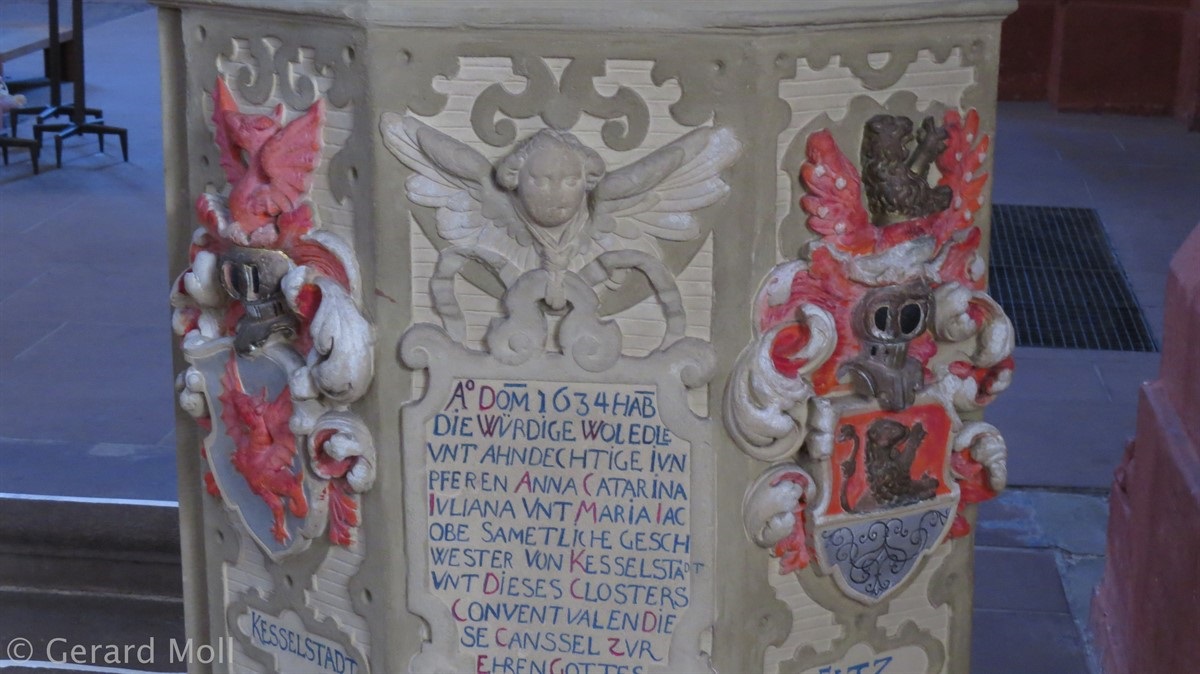 Aº DOM 1634 HAB
DIE WÜRDIGE WOLEDLE
VNT AHNDECHTIGE IVN
PFEREN ANNA CATARINA
IVLIANA VNT MARIA IAC
OBE SAMETLICHE GESCH
WESTER VON KESSELSTADT
VNT DIESES CLOSTERS
CONVENTVALEN DIE
SE CANSSEL ZVR
EHREN GOTTES
KESSELSTADT
© Gerard Moll